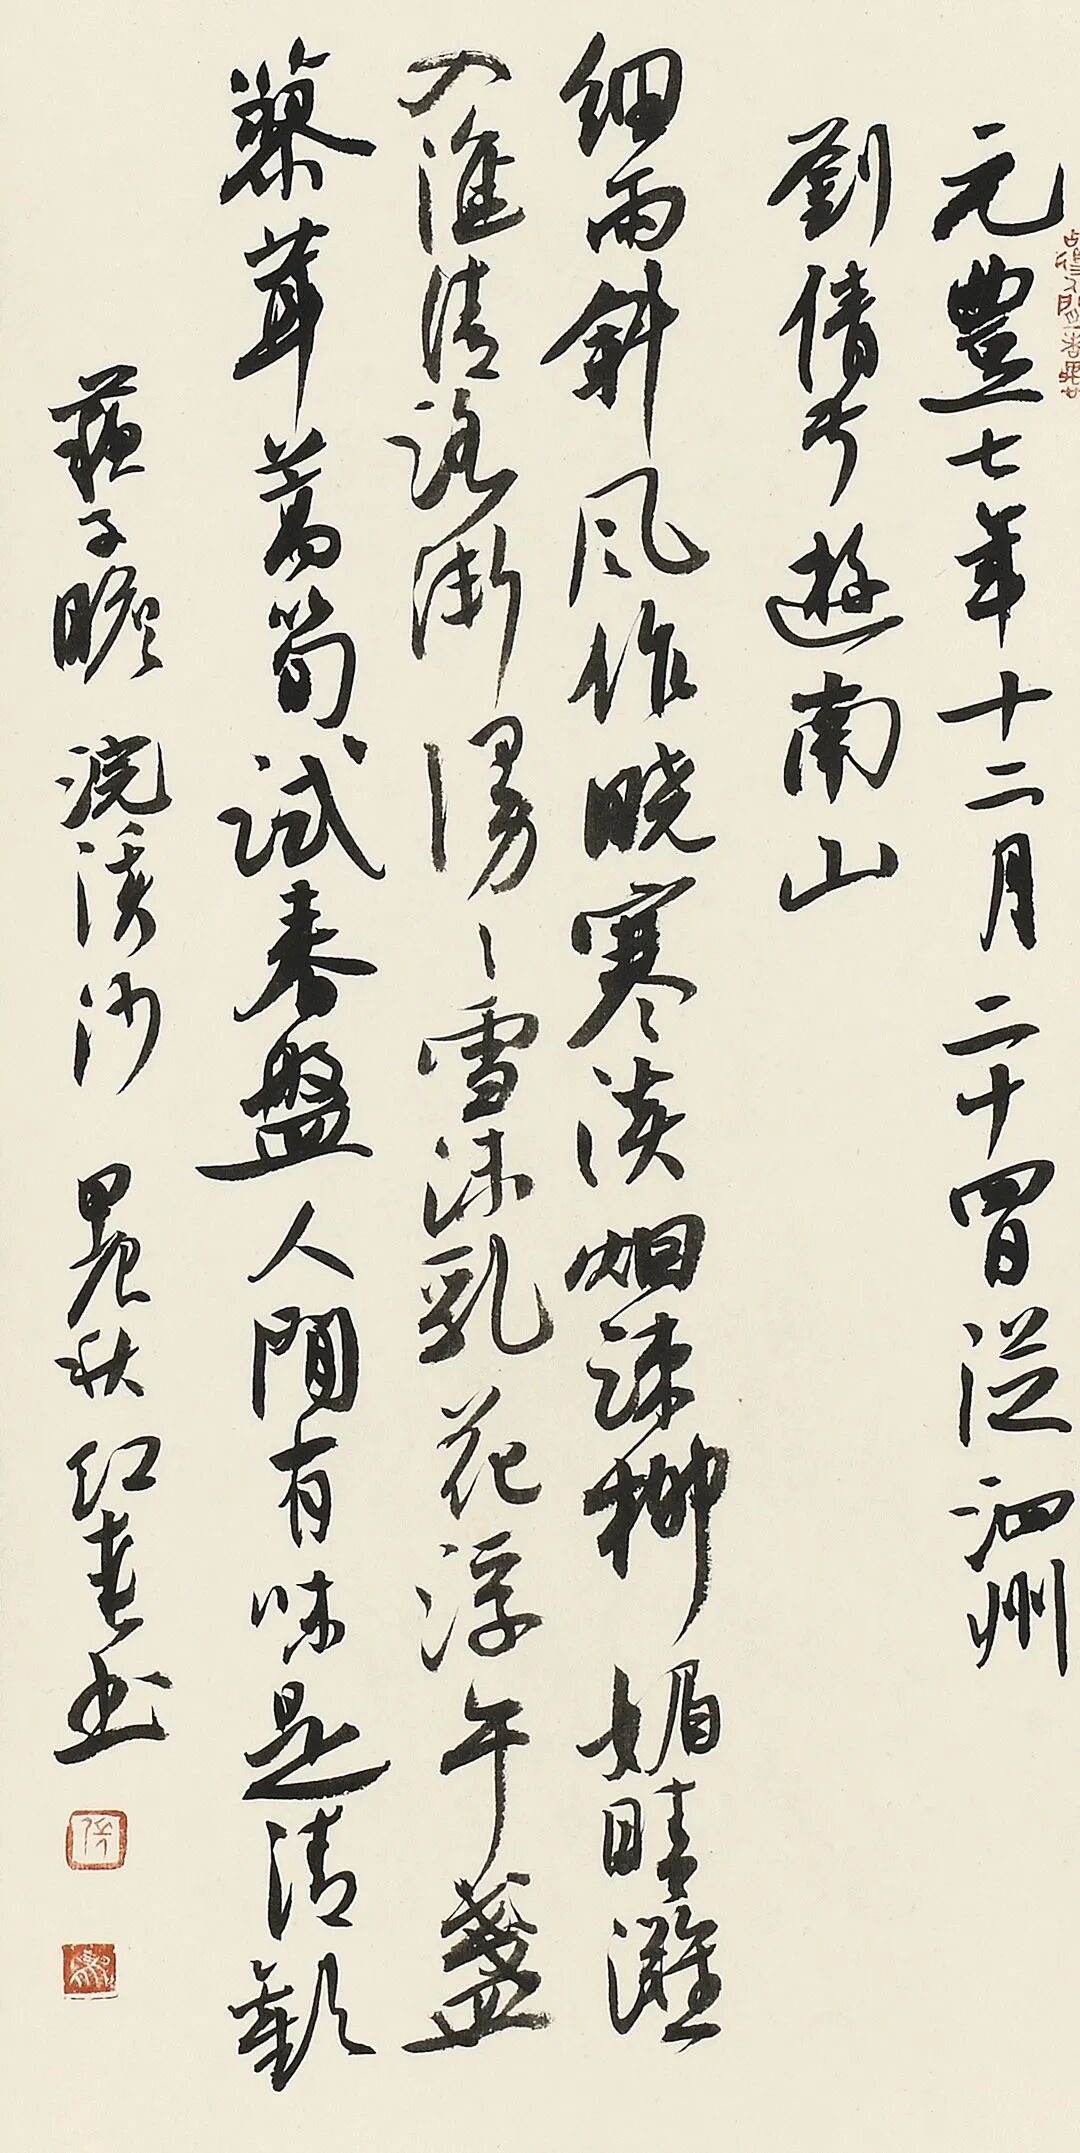 元豐七年十二月二十四日從泗州
劉倩叔遊南山
細雨斜风作晓寒淡烟疎柳媚晴灘
入淮清洛漸漫〻雪沫乳花浮午盞
蓼茸蒿筍試春盤人間有味是清歡
蘇子瞻 浣溪沙 秋 红春书